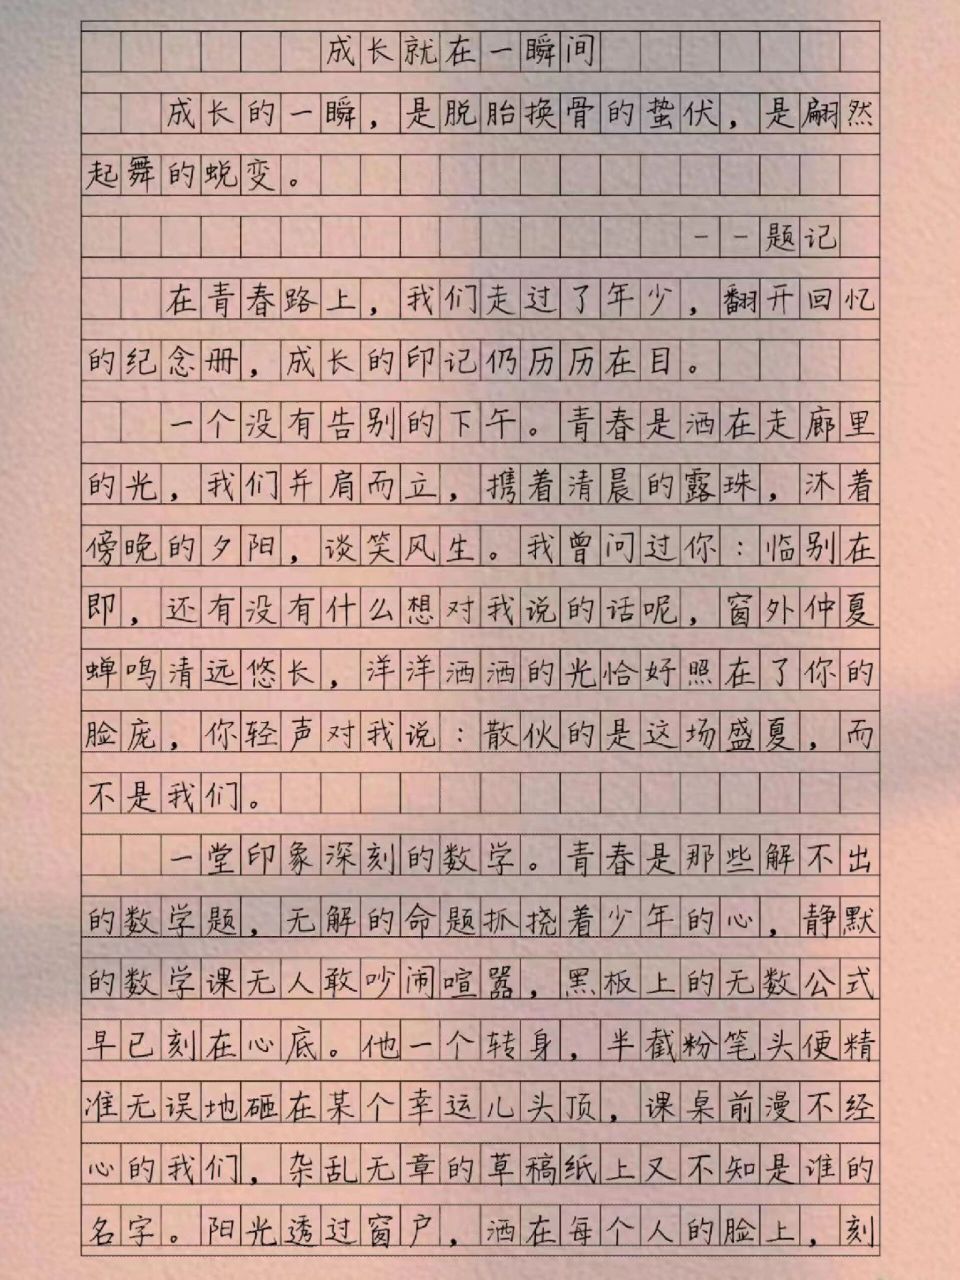 成长就在一瞬间
成长的一瞬，是脱胎换骨的蛰伏，是翩然
起舞的蜕变。
——题记
在青春路上，我们走过了年少，翻开回忆
的纪念册，成长的印记仍历历在目。
一个没有告别的下午。青春是洒在走廊里
的光，我们并肩而立，携着清晨的露珠，沐着
傍晚的夕阳，谈笑风生。我曾问过你：临别在
即，还有没有什么想对我说的话呢，窗外仲夏
蝉鸣清远悠长，洋洋洒洒的光恰好照在了你的
脸庞，你轻声对我说：散伙的是这场盛夏，而
不是我们。
一堂印象深刻的数学。青春是那些解不出
的数学题，无解的命题抓挠着少年的心，静默
的数学课无人敢吵闹喧嚣，黑板上的无数公式
早已刻在心底。他一个转身，半截粉笔头便精
准无误地砸在某个幸运儿头顶，课桌前漫不经
心的我们，杂乱无章的草稿纸上又不知是谁的
名字。阳光透过窗户，洒在每个人的脸上，刻